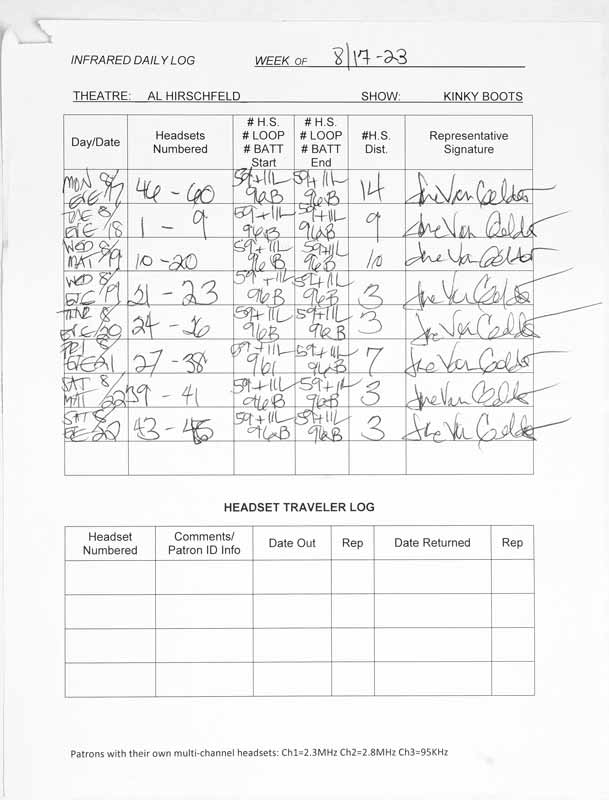 INFRARED DAILY LOG WEEK OF 8/17-23
THEATRE: AL HIRSCHFELD SHOW: KINKY BOOTS
Day/Date Headsets Numbered # H.S. # LOOP # BATT Start # H.S. # LOOP # BATT End #H.S. Dist. Representative Signature
MON 8/17 EVE 46 - 60 59+11L 96B 59+11L 96B 14 Joe Van Gelder
TUE 8/18 EVE 1 - 9 59+11L 96B 59+11L 96B 9 Joe Van Gelder
WED 8/19 MAT 10 - 20 59+11L 96B 59+11L 96B 10 Joe Van Gelder
WED 8/19 EVE 21 - 23 59+11L 96B 59+11L 96B 3 Joe Van Gelder
8/20 EVE 24 - 26 59+11L 96B 59+11L 96B 3 Joe Van Gelder
FRI 8/21 EVE 27 - 38 59+11L 961 59+11L 96B 7 Joe Van Gelder
SAT 8/22 MAT 39 - 41 59+11L 96B 59+11L 96B 3 Joe Van Gelder
SAT 8/22 EVE 43 - 59+11L 96B 59+11L 96B 3 Joe Van Gelder
HEADSET TRAVELER LOG
Headset Numbered Comments/ Patron ID Info Date Out Rep Date Returned Rep
Patrons with their own multi-channel headsets: Ch1=2.3MHz Ch2=2.8MHz Ch3=95KHz